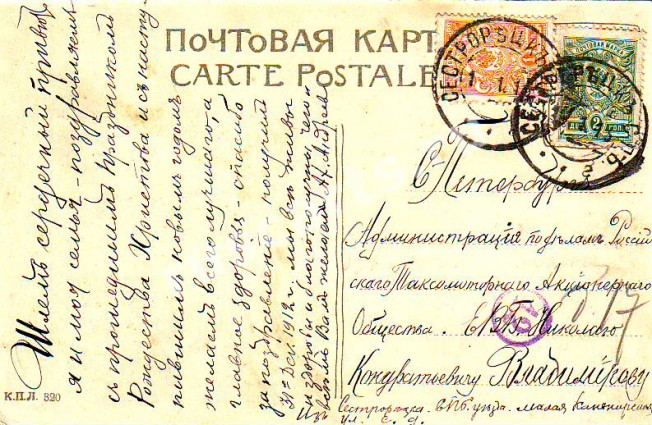 ПОЧТОВАЯ КАРТ
CARTE POSTALE
СЕСТРОРѢЦКЪ
СЕСТРОРѢЦКЪ С.П.Б.
2
Шлемъ сердечный привѣтъ
я и моя семья - поздравляемъ
съ прошедшимъ праздникомъ
Рождества Христова и съ насту-
пившимъ новымъ годомъ
желаемъ всего лучшаго, а
главное здоровья - спасибо
за поздравление - получилъ
31го Дек 1912 г. мы всѣ живы
и здоровы и благополучны, чего и
Вамъ желаемъ
С-Петербургъ
Администрація по дѣламъ Россій
скаго Таксомоторнаго Акціонернаго
Общества. ЕВБ. Николаю
Кондратьевичу Владимірову
Сестрорѣцкъ. СПБ. уѣзда. Малая
ул. с. д.
К.П.Л. 320